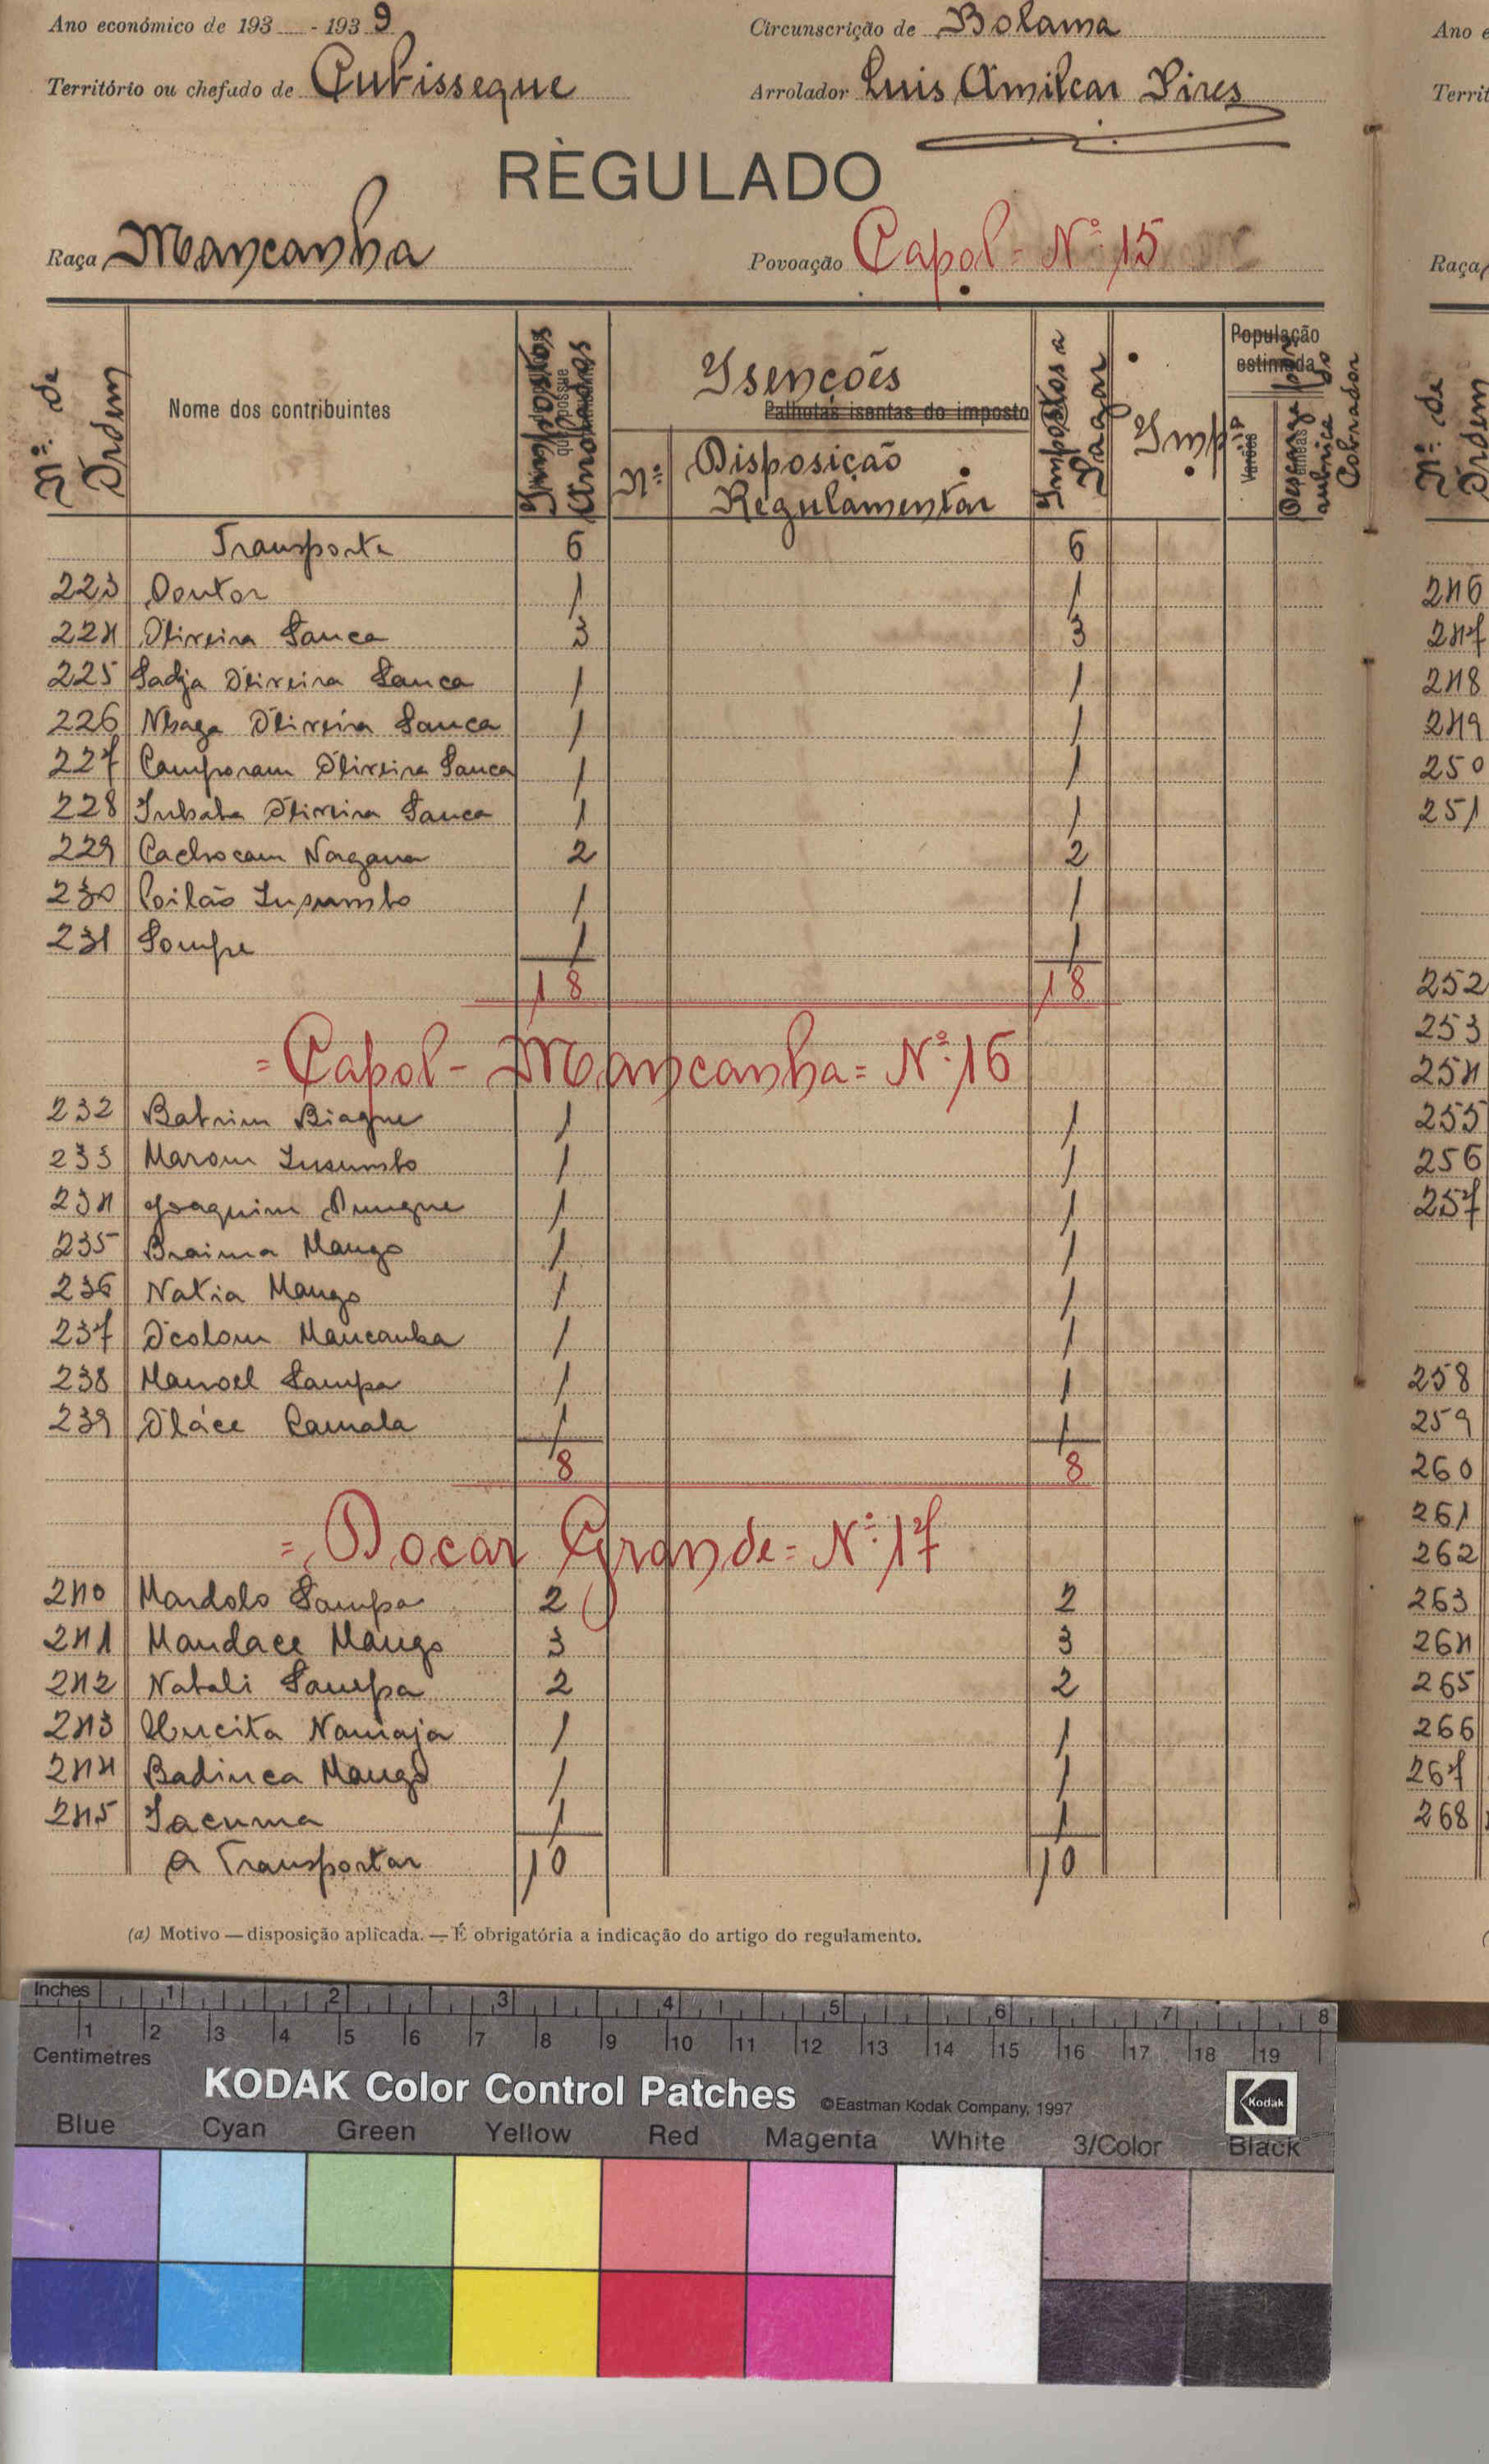 Ano económico de 193 - 1939
Circunscrição de Bolama
Território ou chefado de Cubisseque
Arrolador Luis Amilcar Pires
RÈGULADO
Raça Mancanha
Povoação Capol - Nº 15
Nº de Ordem
Nome dos contribuintes
Impostos Arrolados
Isenções
Palhotas isentas do imposto
Nº
Disposição Regulamentar
Impostos a Pagar
Imp
População estimada
Varões
Descarga por rubrica do Cobrador
Transporte 6 6
223 Doutor 1 1
224 Oliveira Sanca 3 3
225 Sadja Oliveira Sanca 1 1
226 Nbaga Oliveira Sanca 1 1
227 Camporam Oliveira Sanca 1 1
228 Oliveira Sanca 1 1
229 Cachocam 2 2
230 Poilão 1 1
231 Sompe 1 1
18 18
= Capol - Mancanha = Nº 16
232 Batrim Biague 1 1
233 Marom 1 1
234 Joaquim 1 1
235 Braima Mango 1 1
236 Natia Mango 1 1
237 Ocolom Mancanha 1 1
238 Manoel Sampa 1 1
239 Oláce Camala 1 1
8 8
= Docar Grande = Nº 17
240 Mardolo Sampa 2 2
241 Mandace Mango 3 3
242 Natali Sampa 2 2
243 Namaja 1 1
244 Badinca Mango 1 1
245 Iacuma 1 1
A Transportar 10 10
(a) Motivo — disposição aplicada. — É obrigatória a indicação do artigo do regulamento.
Ano e
Territ
Raça
Nº de Ordem
246
247
248
249
250
251
252
253
254
255
256
257
258
259
260
261
262
263
264
265
266
267
268
Inches 1 2 3 4 5 6 7 8
1 2 3 4 5 6 7 8 9 10 11 12 13 14 15 16 17 18 19
Centimetres
KODAK Color Control Patches ©Eastman Kodak Company, 1997 Kodak
Blue Cyan Green Yellow Red Magenta White 3/Color Black